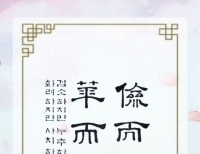 儉而
華而
검소하지만 누추하
화려하지만 사치하